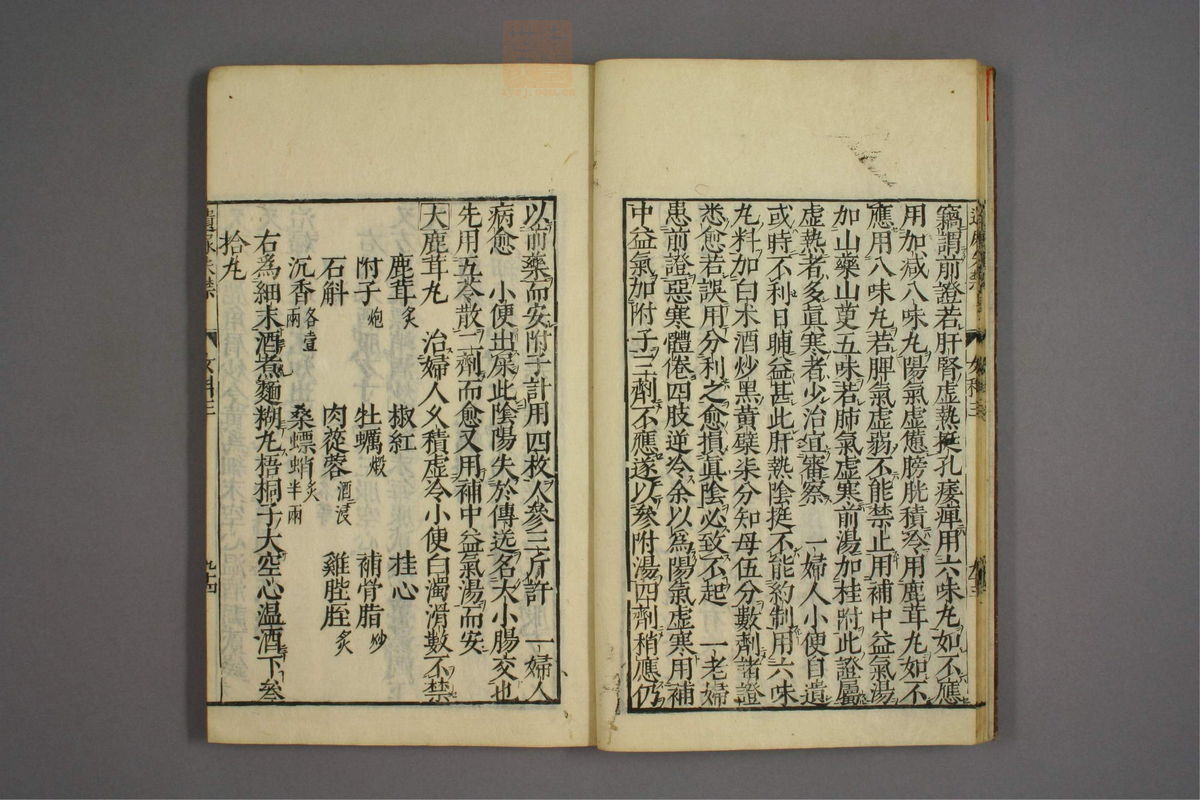 竊謂前證若肝腎虛熱挺孔痿痺用六味丸如不應
用加減八味丸陽氣虛憊膀胱積冷用鹿茸丸如不
應用八味丸若脾氣虛弱不能禁止用補中益氣湯
加山藥山茰五味若肺氣虛寒前湯加桂附此證屬
虛熱者多眞寒者少治宜審察　一婦人小便自遺
或時不利日晡益甚此肝熱陰挺不能約制用六味
丸料加白朮酒炒黑黃蘗柒分知母伍分數劑諸證
悉愈若誤用分利之愈損眞陰必致不起　一老婦
患前證惡寒體倦四肢逆冷余以爲陽氣虛寒用補
中益氣加附子三劑不應遂以參附湯四劑稍應仍
以前藥而安附子計用四枚人參三斤許　一婦人
病愈　小便出屎此陰陽失於傳送名大小腸交也
先用五苓散二劑而愈又用補中益氣湯而安
大鹿茸丸　治婦人久積虛冷小便白濁滑數不禁
鹿茸炙　椒紅　桂心
附子炮　牡蠣煅　補骨脂炒
石斛　肉蓯蓉酒浸　雞膍胵炙
沉香各壹兩　桑螵蛸炙半兩
右爲細末酒煮麵糊丸梧桐子大空心温酒下叄
拾丸
女科三